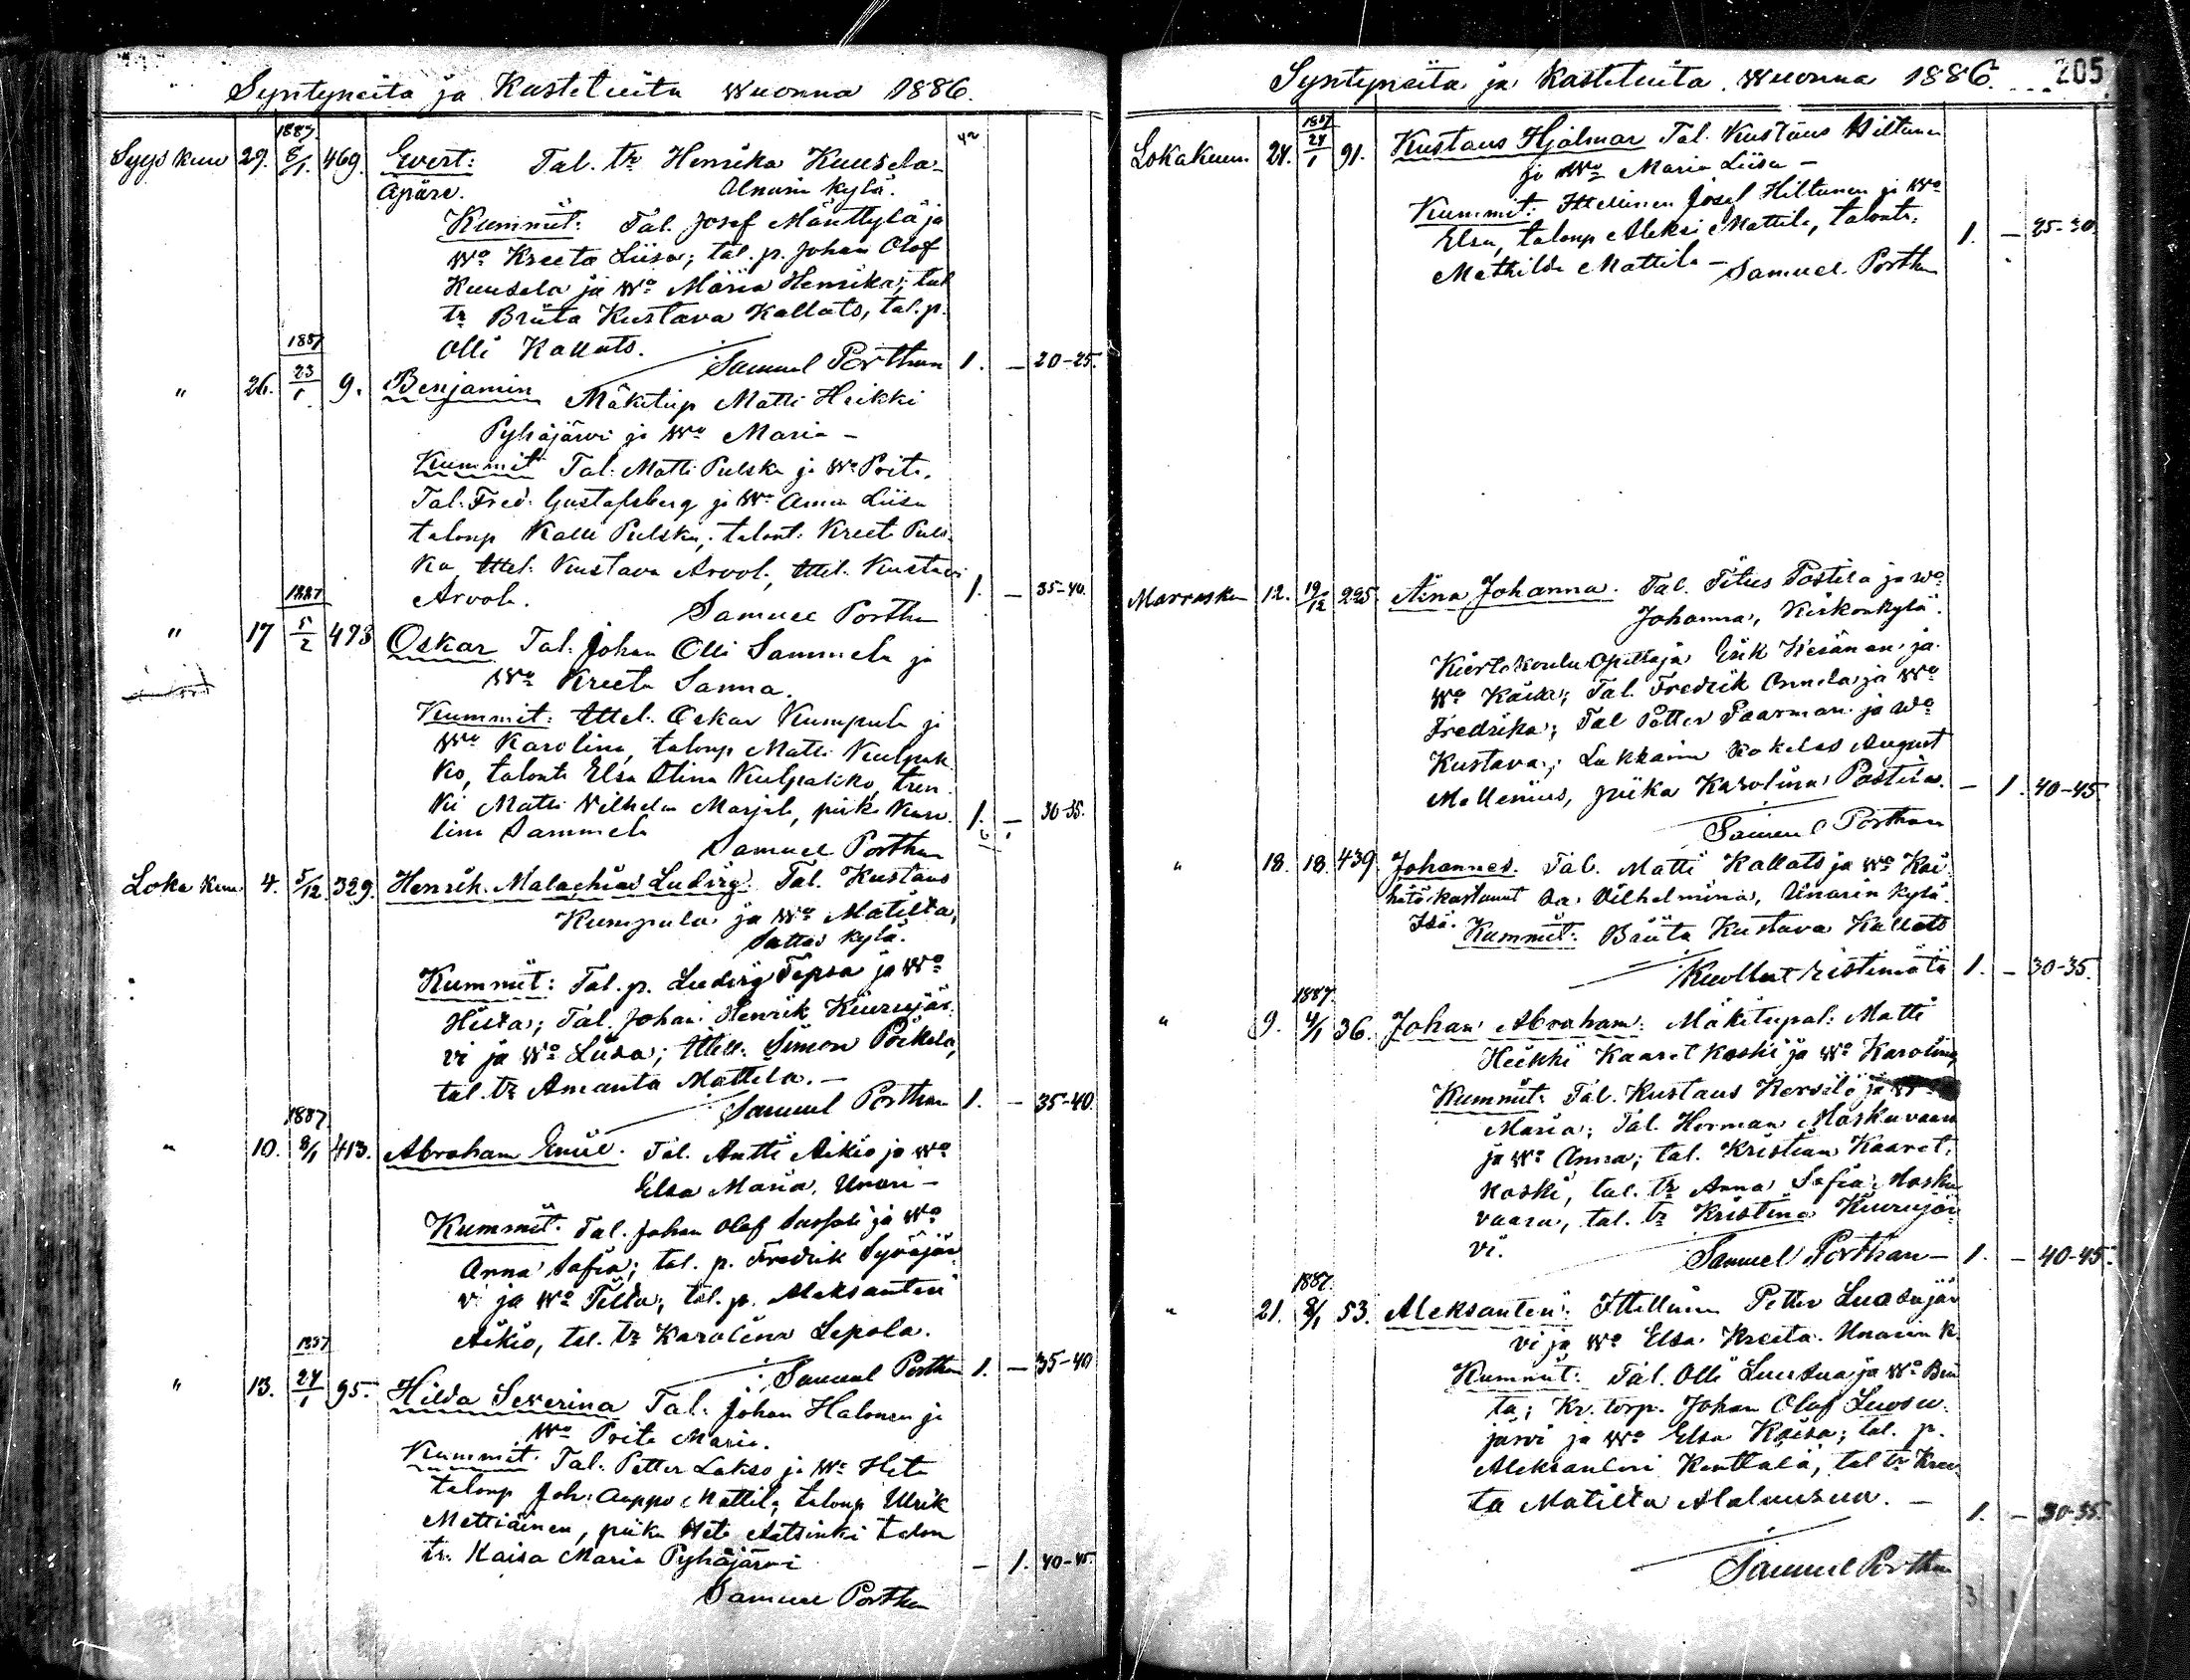 Syntyneitä ja Kastetuita Wuonna 1886.
1887.
Syys kuu 29. 8/1. 469. Evert: Tal. tr Henrika Kuusela
Apäre. Unarin kylä.
Kummit: Tal. Josef Mänttylä ja
Wo Kreeta Liisa; tal. p. Johan Olof
Kuusela ja Wo Maria Henrika; tal
tr Briita Kustava Kallats, tal. p.
Olli Kallats.
Samuel Porthan 1. — 20-25.
1887
" 26. 23/1 9. Benjamin Mäkitup Matti Heikki
Pyhäjärvi ja Wo Maria —
Kummit Tal. Matti Pulska ja Wo Priita,
Tal. Fred. Gustafsberg ja Wo Anna Liisa
talonp Kalle Pulska, talont. Kreeta Puls-
ka, Ittel. Kustava Arvol., Ittel. Kustavi
Arvola. 1. — 35-40.
Samuel Porthan
1887
" 17 5/2 473 Oskar Tal. Johan Olli Sammela ja
Wo Kreeta Sanna.
Kummit: Ittel. Oskar Kumpula ja
Wo Karolina, talonp Matti Kulpak
ko, talontr Elsa Stina Kulpakko, tren
ki Matti Vilhelm Marjala, piika Karo
lina Sammela 1. — 30-35.
Samuel Porthan
Loka Kuu 4. 5/12. 329. Henrik Malachias Ludvig: Tal. Kustaus
Kumpula ja Wo Matilta,
Sattas kylä.
Kummit: Tal. p. Ludvig Tepsa ja Wo
Hilta; Tal. Johan Henrik Kiurujär
vi ja Wo Liisa; Ittell. Simon Poikela,
tal. tr Amanta Mattila. —
Samuel Porthan 1. — 35-40.
1887
" 10. 8/1 413. Abraham Emil. Tal. Antti Aikio ja Wo
Elsa Maria, Unari —
Kummit. Tal. Johan Olof Sassali ja Wo
Anna Sofia; tal. p. Fredrik Syväjär
vi ja Wo Tilda; tal. p. Aleksanteri
Aikio, tal. tr Karolina Lepola.
Samuel Porthan 1. — 35-40
1887
" 13. 24/1 95. Hilda Severina Tal. Johan Halonen ja
Wo Priita Maria.
Kummit. Tal. Petter Lakso ja Wo Heta
talonp Joh: Auppo Mattila, talonp Ulrik
Mettiäinen, piika Heta Aatsinki talon
tr. Kaisa Maria Pyhäjärvi — 1. 40-45.
Samuel Porthan
Syntyneitä ja Kastetuita Wuonna 1886. 205
1887
Lokakuun 24. 24/1 91. Kustaus Hjalmar Tal. Kustaus Hiltunen
ja Wo Maria Liisa —
Kummit: Ittellinen Josef Hiltunen ja Wo
Elsa, talonp Aleksi Mattila, talontr.
Mathilda Mattila — 1. — 25-30
Samuel Porthan
Marrasku 12. 19/12 225. Aina Johanna. Tal. Titus Postila ja Wo
Johanna, Kirkonkylä.
Kiertokoulu Opettaja Erik Keränen ja
Wo Kaisa; Tal. Fredrik Onnela ja Wo
Fredrika; Tal Petter Paarman ja Wo
Kustava; Lukkarin August
Mellenius, piika Karolina Postila. — 1. 40-45.
Samuel Porthan
" 18. 18. 439. Johannes. Tal. Matti Kallats ja Wo Kai
hätä kastanut sa Vilhelmina, Unarin kylä.
Isä. Kummit: Briita Kustava Kallats
Kuollut ristimätä 1. — 30-35.
1887.
" 9. 4/1 36. Johan Abraham: Mäkitupal: Matti
Heikki Kaaretkoski ja Wo Karolina
Kummit: Tal. Kustaus Kersilö ja Wo
Maria; Tal. Herman Moskuvaara
ja Wo Anna; tal. Kristian Kaaret,
koski, tal. tr Anna Sofia Mosku
vaara, tal. tr Kristina Kiurujär
vi.
Samuel Porthan — 1. — 40-45.
1887
" 21. 8/1 53. Aleksanteri: Ittellinen Petter Luosujär
vi ja Wo Elsa Kreeta. Unarin k.
Kummit: Tal. Olli Luusua ja Wo Brii
ta; Kr. torp. Johan Olof Luosu
järvi ja Wo Elsa Kaisa; tal. p.
Aleksanteri Kenttälä, tal tr Kree
ta Matilta Alaluusua. — 1. — 30-35.
Samuel Porthan
3 1